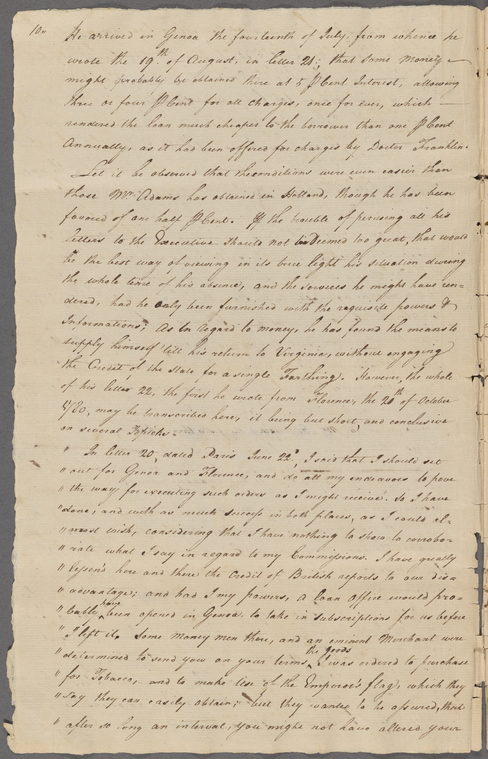 10.
He arrived in Genoa the fourteenth of July, from whence he
wrote the 19th. of August, in letter 21; that some money
might probably be obtained there at 5 ⅌Cent Interest, allowing
three or four ⅌Cent for all charges, once for ever, which
rendered the loan much cheaper to the borrower than one ⅌Cent
Annually, as it had been offered for charges by Doctor Franklin.
Let it be observed that the conditions were even easier than
those Mr. Adams has obtained in Holland, though he has been
favored of one half ⅌Cent. If the trouble of perusing all his
letters to the Executive should not be deemed too great, that would
be the best way of viewing in its true light his situation during
the whole time of his absence, and the services he might have ren-
dered, had he only been furnished with the requisite powers &
Informations; As to regard to money, he has found the means to
supply himself till his return to Virginia, without engaging
the Credit of the State for a single Farthing. However, the whole
of his letter 22, the first he wrote from Florence, the 26th of October
1780, may be transcribed here, it being but short, and conclusive
on several
" In letter 20, dated Paris June 22d, I said that I should set
" out for Genoa and Florence, and do all my endeavors to pave
" the way for executing such orders as I might receive. So I have
" done; and with as much success in both places, as I could al-
" most wish, considering that I have nothing to show to corrobo-
" rate what I say in regard to my Commissions. I have greatly
" lessen'd here and there the credit of British reports to our disa
" advantage; and had I my powers, a loan office would pro-
" bably have been opened in Genoa to take in subscriptions for us before
" I left it. Some money men there, and an eminent Merchant were
" determined to send you on your terms the goods I was ordered to purchase
" for Tobacco, and to make use of the Emperor's flag, which they
" say they can easily obtain; but they wanted to be assured, that
" after so long an interval, you might not have altered your